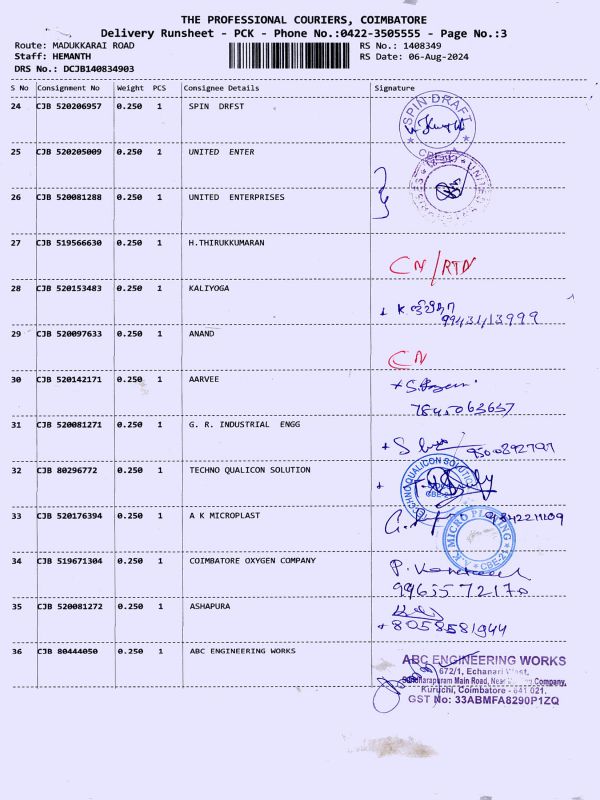 THE PROFESSIONAL COURIERS, COIMBATORE
Delivery Runsheet - PCK - Phone No.:0422-3505555 - Page No.:3
Route: MADUKKARAI ROAD
Staff: HEMANTH
DRS No.: DCJB140834903
RS No.: 1408349
RS Date: 06-Aug-2024
S No Consignment No Weight PCS Consignee Details Signature
24 CJB 520206957 0.250 1 SPIN DRFST
SPIN DRAFT
25 CJB 520205009 0.250 1 UNITED ENTER
26 CJB 520081288 0.250 1 UNITED ENTERPRISES
27 CJB 519566630 0.250 1 H.THIRUKKUMARAN
CN/RTN
28 CJB 520153483 0.250 1 KALIYOGA
99431413999
29 CJB 520097633 0.250 1 ANAND
CN
30 CJB 520142171 0.250 1 AARVEE
31 CJB 520081271 0.250 1 G. R. INDUSTRIAL ENGG
32 CJB 80296772 0.250 1 TECHNO QUALICON SOLUTION
33 CJB 520176394 0.250 1 A K MICROPLAST
34 CJB 519671304 0.250 1 COIMBATORE OXYGEN COMPANY
9963572170
35 CJB 520081272 0.250 1 ASHAPURA
+8058581944
36 CJB 80444050 0.250 1 ABC ENGINEERING WORKS
ABC ENGINEERING WORKS
672/1, Echanari
Main Road, Company,
Kuruchi, Coimbatore - 641 021.
GST No: 33ABMFA8290P1ZQ